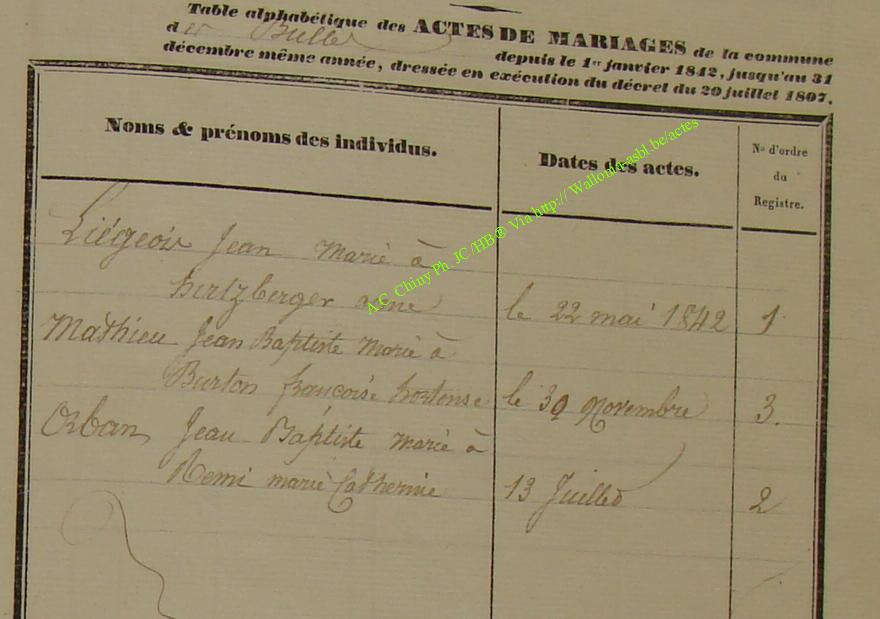 Table alphabétique des ACTES DE MARIAGES de la commune
d
depuis le 1er janvier 1842, jusqu'au 31
décembre même année, dressée en exécution du décret du 20 juillet 1807.
Noms & prénoms des individus.
Dates des actes.
No d'ordre
du
Registre.
Liégeois Jean Marié à
hertzberger anne
le 22 mai 1842
1
Mathieu Jean Baptiste Marié à
Burton françoise hortense
le 30 Novembre
3.
Orban Jean Baptiste Marié à
Remi marie Catherine
13 Juillet
2
A.C. Chiny Ph. JC /HB® Via http:// Wallonia-asbl.be/actes